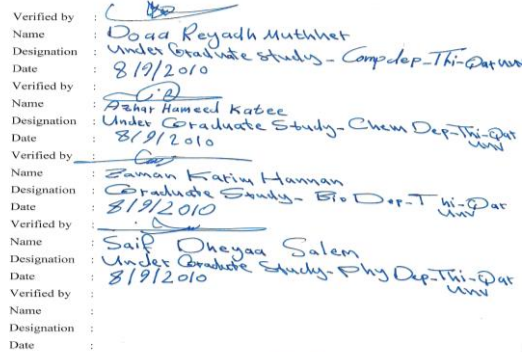 Verified by :
Name : Doaa Reyadh Muthher
Designation : Under Graduate study - Comp dep - Thi-Qar unv
Date : 8/9/2010
Verified by :
Name : Azhar Hameed Katee
Designation : Under Graduate Study - Chem Dep - Thi-Qar Unv
Date : 8/9/2010
Verified by :
Name : Zaman Karim Hannan
Designation : Graduate Study - Bio Dep - Thi-Qar Unv
Date : 8/9/2010
Verified by :
Name : Saif Dheyaa Salem
Designation : Under Graduate Study - Phy Dep - Thi-Qar Unv
Date : 8/9/2010
Verified by :
Name :
Designation :
Date :